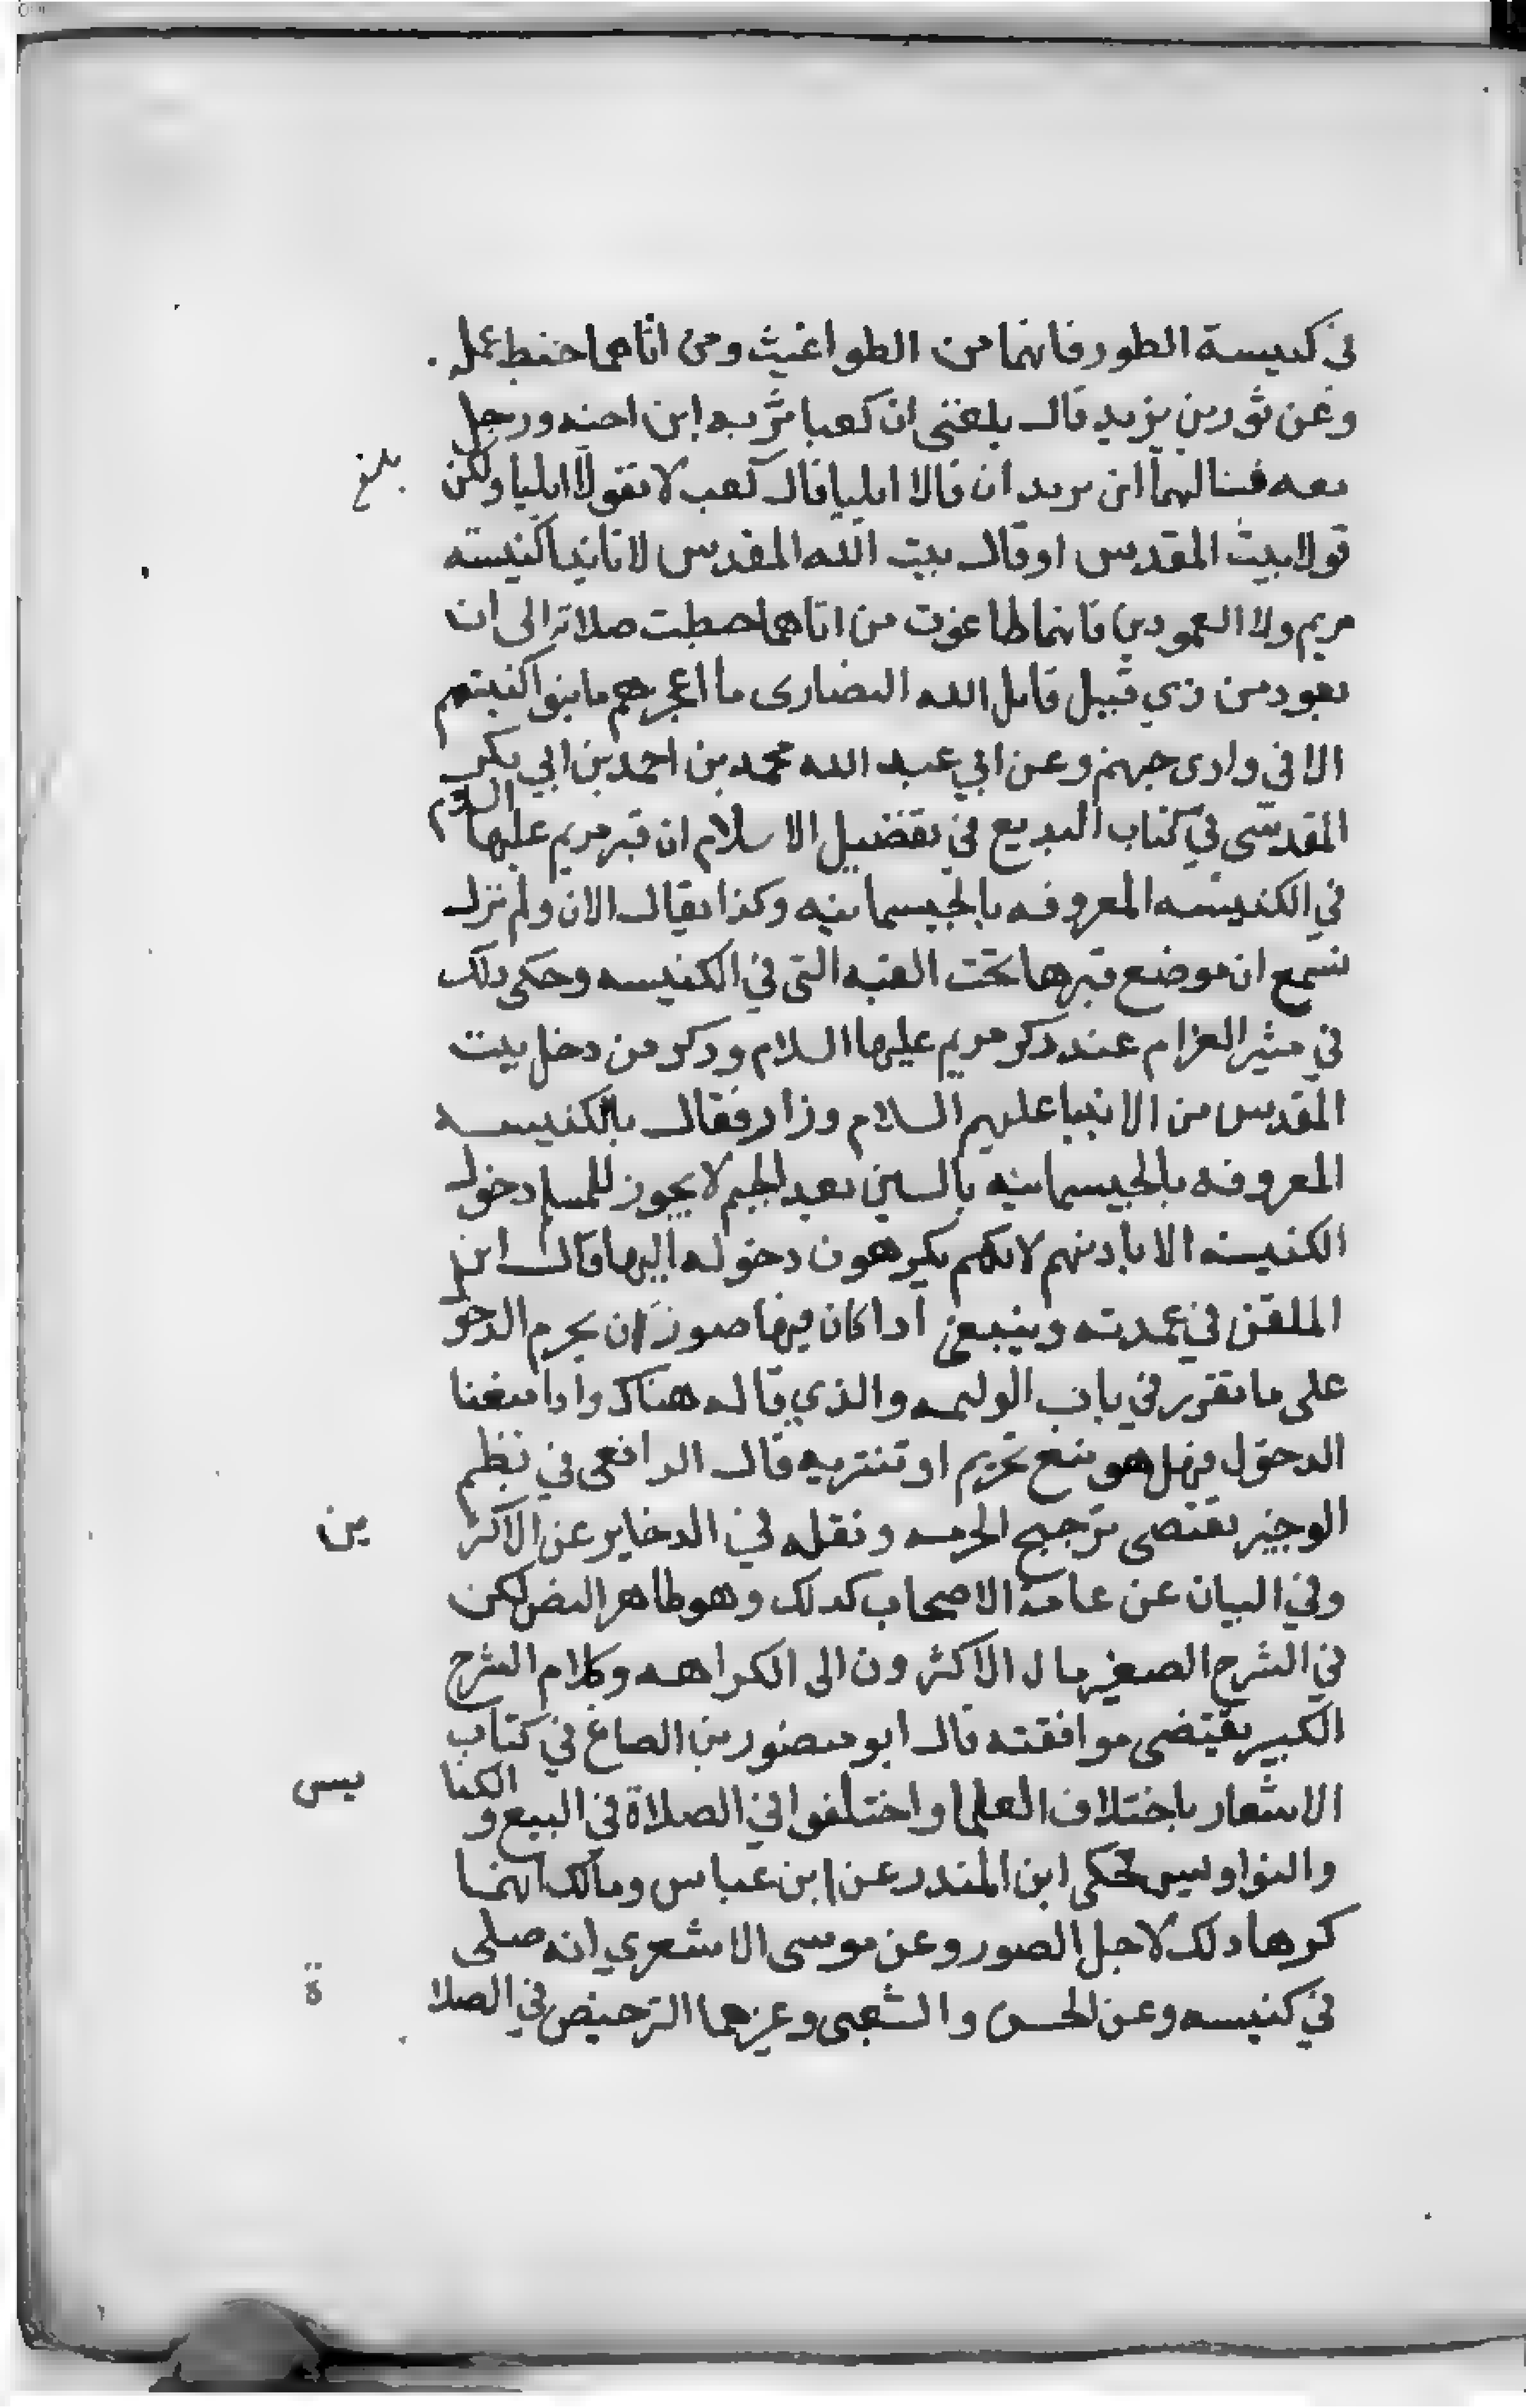 في كنيسة الطور فانهما من الطواغيث ومن اتاهما حفط عمله
وعن ثور بن يزيد قال بلغني ان كعبا مر به ابن اخيه ورجل
معه فسالهما اين يريدان قالا ايليا قال كعب لا تقولا ايليا ولكن بلغ
قولا بيت المقدس او قال بيت الله المقدس لا تاتيا كنيسته
مريم ولا العمودين فانهما طاغوت من اتاهما حبطت صلاته الى ان
يعود من ذي قبيل قاتل الله النصارى ما اعجزهم ما بنوا كنيستهم
الا في وادى جهنم وعن ابي عبد الله محمد بن احمد بن ابي بكر
المقدسي في كتاب البديع في تفضيل الاسلام ان قبر مريم عليها السلام
في الكنيسه المعروفه بالجيسمانيه وكذا يقال الان ولم نزل
نسمع ان موضع قبرها تحت القبه التى في الكنيسه وحكى ذلك
في مثير الغرام عند ذكر مريم عليها السلام وذكر من دخل بيت
المقدس من الانبيا عليهم السلام وزار فقال بالكنيسه
المعروفه بالجيسمانيه بالسين بعد الجيم لا يجوز للمسلم دخول
الكنيسه الا باذنهم لانهم يكرهون دخوله اليها وقال ابن
الملقن في عمدته وينبغي اذا كان فيها صور ان يحرم الدخو
على ما تقرر في باب الوليمه والذي قاله هناك واذا منعنا
الدخول فهل هو منع تحريم او تنزيه قال الرافعى في نظم
الوجيز يقتضى ترجيح الحرمه ونقله في الدخاير عن الاكثر ين
وفي البيان عن عامة الاصحاب كدلك وهو ظاهر النص لكن
في الشرح الصغير مال الاكثرون الى الكراهه وكلام الشرح
الكبير يقتضى موافقته قال ابو منصور بن الصاغ في كتاب
الاشعار باختلاف العلما واختلفوا في الصلاة في البيع و الكنا يس
والنواويس فحكى ابن المندر عن ابن عباس ومالك انهما
كرها دلك لاجل الصور وعن موسى الاشعري انه صلى
في كنيسه وعن الحسن والشعبى وغيرهما الترخيص في الصلا ة